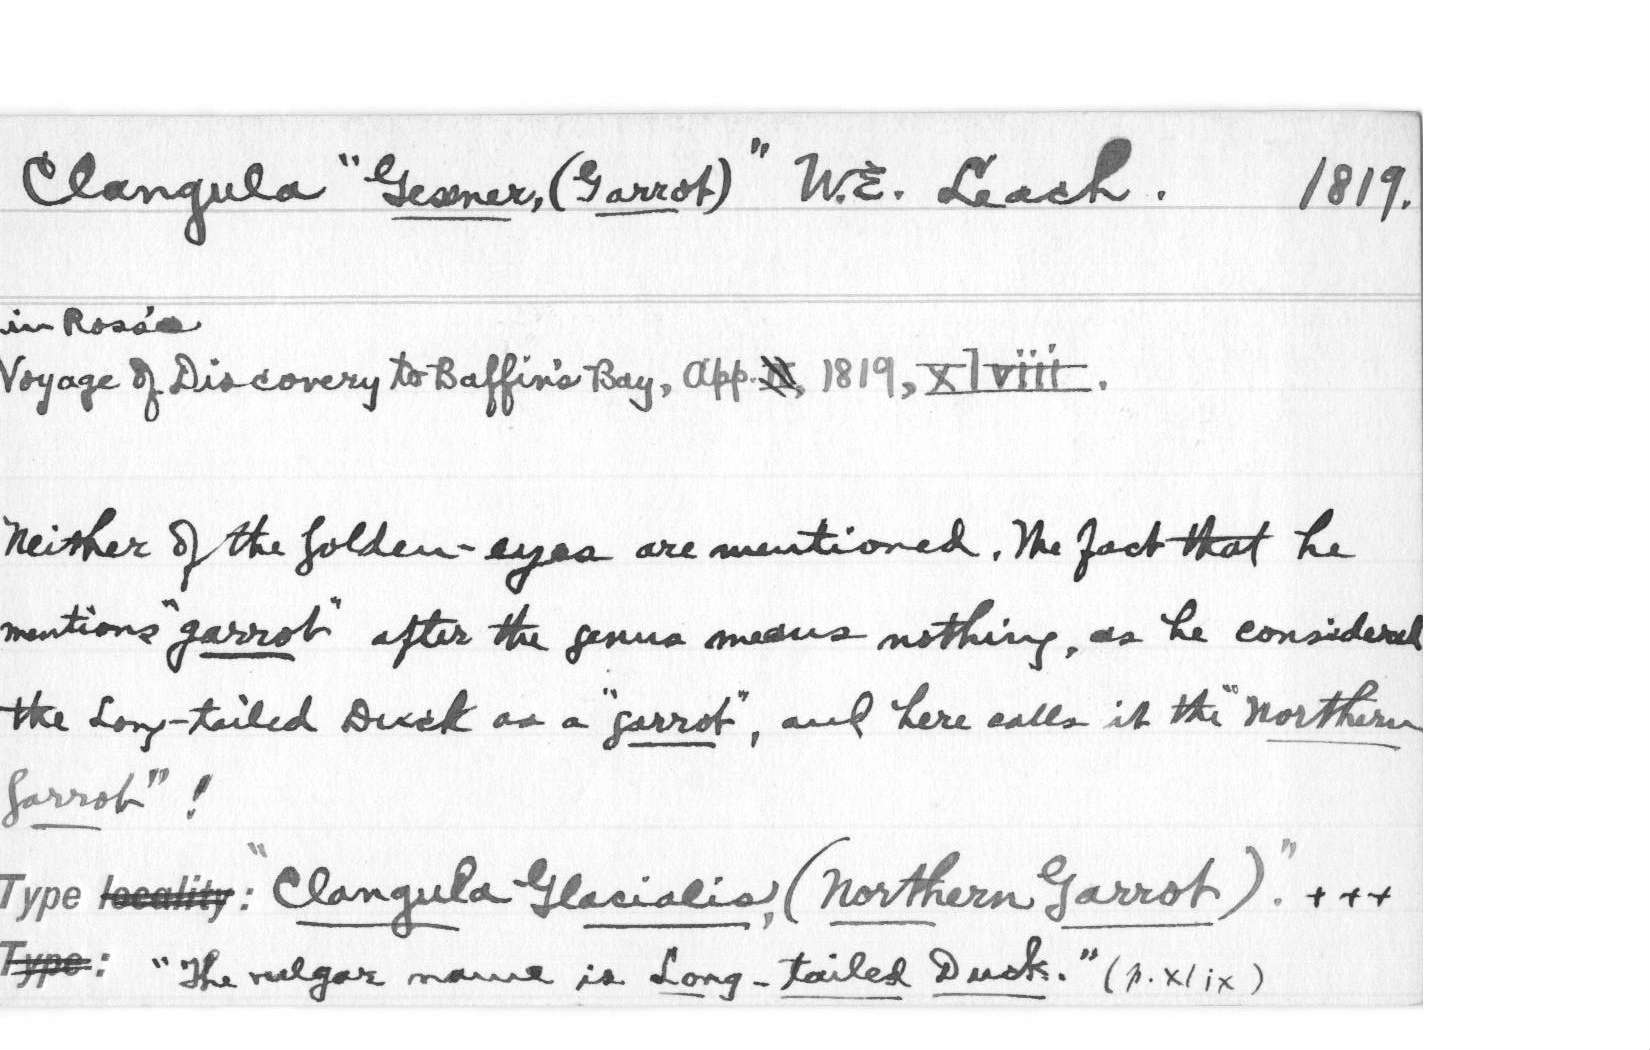 Clangula "Gesner, (Garrot)" W.E. Leach. 1819.
in Ross's
Voyage of Discovery to Baffin's Bay, App. , 1819, xlviii.
Neither of the Golden-eyes are mentioned. The fact that he
mentions "garrot" after the genus means nothing, as he considered
the Long-tailed Duck as a "garrot", and here calls it the "Northern
Garrot"!
Type locality: "Clangula Glacialis, (Northern Garrot)." +++
Type: "The vulgar name is Long-tailed Duck." (p. xlix)